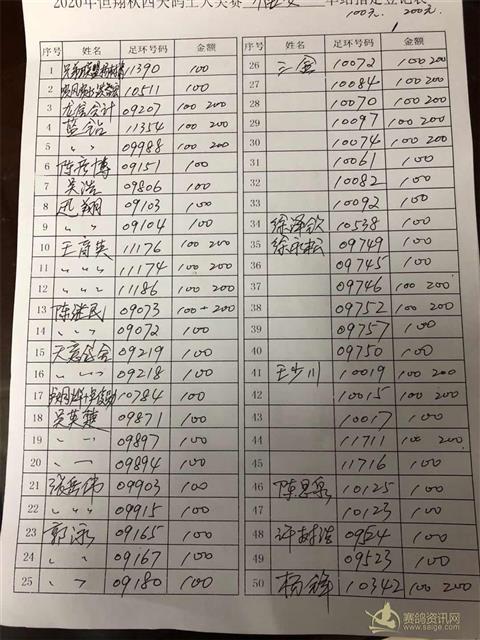 2020年恒翔秋四关鸽王大奖赛 单站指定登记表
100元. 200元.
序号 姓名 足环号码 金额
1 11390 100
2 10511 100
3 09207 100 200
4 蓝钻 11354 100 200
5 〃 〃 09988 100 200
6 陈彦博 09151 100
7 吴浩 09806 100
8 迅翔 09103 100
9 〃 〃 09104 100
10 王育英 11176 100 200
11 〃 〃 〃 11174 100 200
12 〃 〃 〃 11186 100 200
13 陈继民 09073 100+200
14 〃 〃 09072 100
15 天意鸽舍 09219 100
16 〃 〃 09218 100
17 10784 100
18 吴英 09871 100
19 〃 〃 09897 100
20 〃 〃 09894 100
21 张岳伟 09903 100
22 〃 〃 09915 100
23 郭泳 09165 100
24 〃 〃 09167 100
25 〃 〃 09180 100
序号 姓名 足环号码 金额
26 三金 10072 100 200
27 10084 100 200
28 10070 100 200
29 10097 100 200
30 10074 100 200
31 10061 100
32 10082 100
33 10092 100
34 徐泽钦 10538 100
35 徐永松 09749 100
36 09745 100
37 09746 100 200
38 09752 100 200
39 09757 100
40 09750 100
41 王步川 10019 100 200
42 10015 100 200
43 10017 100
44 11711 100 200
45 11716 100
46 陈思泉 10125 100
47 10123 100
48 09524 100
49 09523 100
50 杨锋 10342 100 200
赛鸽资讯网
www.saige.com